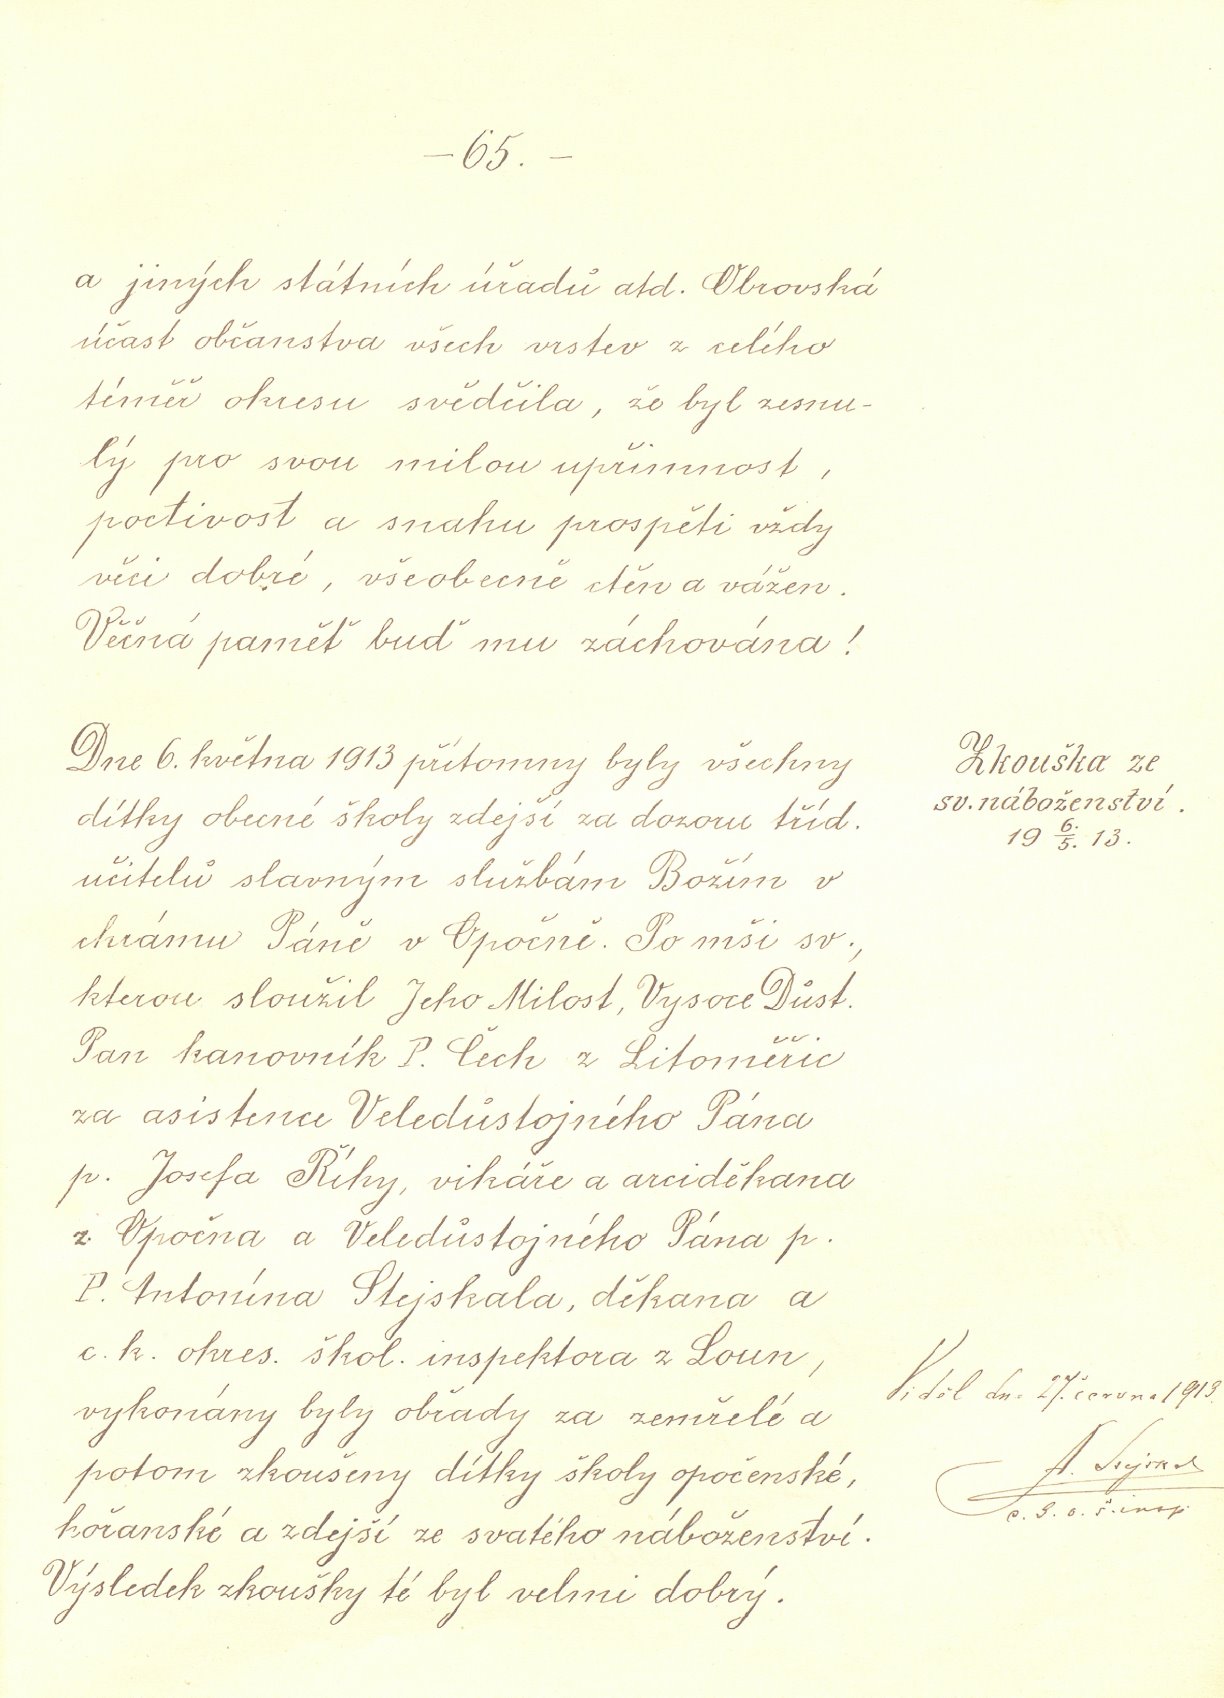 – 65. –
a jiných státních úřadů atd. Obrovská
účast občanstva všech vrstev z celého
téměř okresu svědčila, že byl zesnu-
lý pro svou milou upřímnost,
poctivost a snahu prospěti vždy
věci dobré, všeobecně ctěn a vážen.
Věčná paměť buď mu záchována!
Dne 6. května 1913 přítomny byly všechny
dítky obecné školy zdejší za dozoru tříd.
učitelů slavným službám Božím v
chrámu Páně v Opočně. Po mši sv.,
kterou sloužil Jeho Milost, Vysoce Důst.
Pan kanovník P. Čech z Litoměřic
za asistence Veledůstojného Pána
p. Josefa Říhy, vikáře a arciděkana
z Opočna a Veledůstojného Pána p.
P. Antonína Stejskala, děkana a
c. k. okres. škol. inspektora z Loun,
vykonány byly obřady za zemřelé a
potom zkoušeny dítky školy opočenské,
hořanské a zdejší ze svatého náboženství.
Výsledek zkoušky té byl velmi dobrý.
Zkouška ze
sv. náboženství.
19 6./5. 13.
Viděl dne 27. června 1913.
A. Stejskal
c. k. o. š. insp.